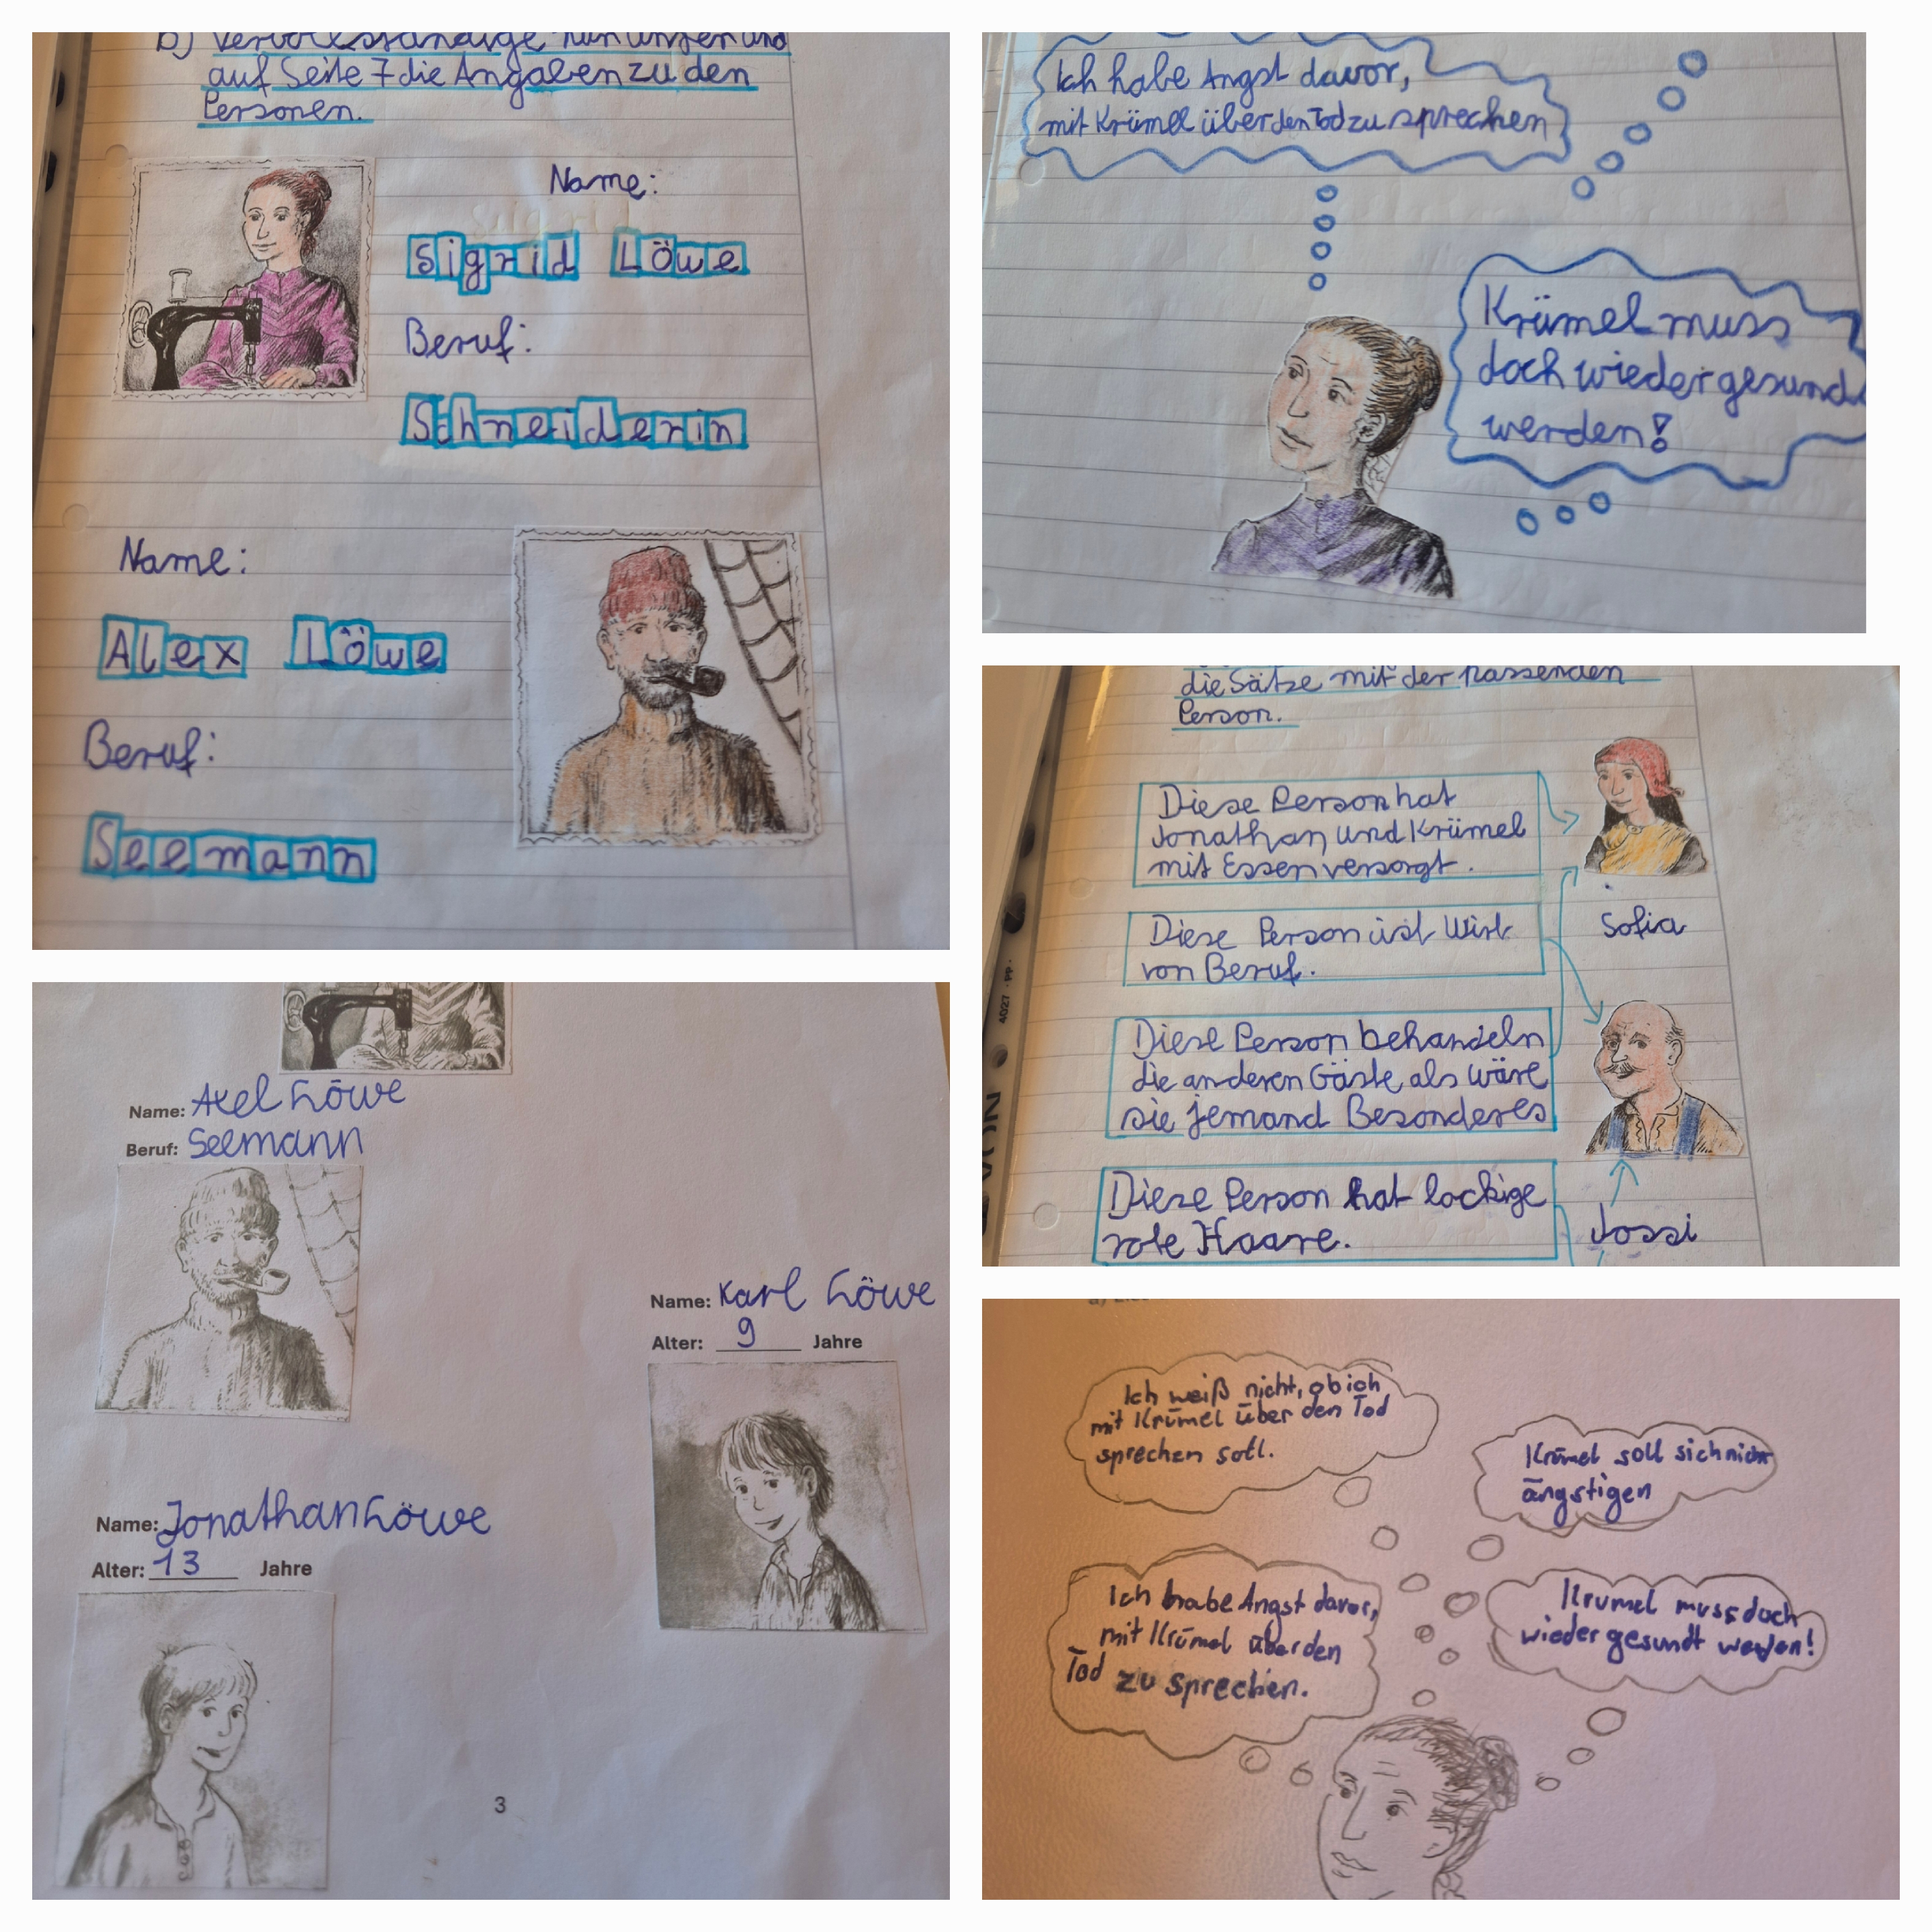 b) Vervollständige nun unten und
auf Seite 7 die Angaben zu den
Personen.
Name:
Sigrid Löwe
Beruf:
Schneiderin
Name:
Alex Löwe
Beruf:
Seemann
Ich habe Angst davor,
mit Krümel über den Tod zu sprechen
Krümel muss
doch wieder gesund
werden!
die Sätze mit der passenden
Person.
Diese Person hat
Jonathan und Krümel
mit Essen versorgt.
Sofia
Diese Person ist Wirt
von Beruf.
Diese Person behandeln
die anderen Gäste als wäre
sie jemand Besonderes
Diese Person hat lockige
rote Haare.
Jossi
Name: Axel Löwe
Beruf: Seemann
Name: Karl Löwe
Alter: 9 Jahre
Name: Jonathan Löwe
Alter: 13 Jahre
3
Ich weiß nicht, ob ich
mit Krümel über den Tod
sprechen soll.
Krümel soll sich nicht
ängstigen
Ich habe Angst davor,
mit Krümel über den
Tod zu sprechen.
Krumel muss doch
wieder gesundt werden!